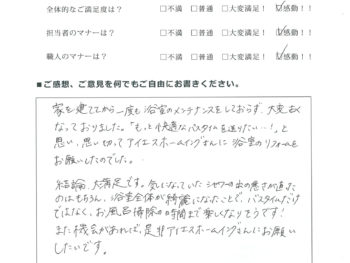 全体的なご満足度は？ □不満 □普通 □大変満足！ ☑感動！！
担当者のマナーは？ □不満 □普通 □大変満足！ ☑感動！！
職人のマナーは？ □不満 □普通 □大変満足！ ☑感動！！
■ご感想、ご意見を何でもご自由にお書きください。
家を建ててから一度も浴室のメンテナンスをしておらず、大変古く
なっておりました。「もっと快適なバスタイムを送りたい…！」と
思い、思い切ってアイエスホームイングさんに浴室のリフォームを
お願いしたのでした。
結論、大満足です。気になっていたシャワーの出の悪さが直った
のはもちろん、浴室全体が綺麗になったことで、バスタイムだけ
ではなく、お風呂掃除の時間まで楽しくなりそうです！
また機会があれば、是非アイエスホームイングさんにお願い
したいです。